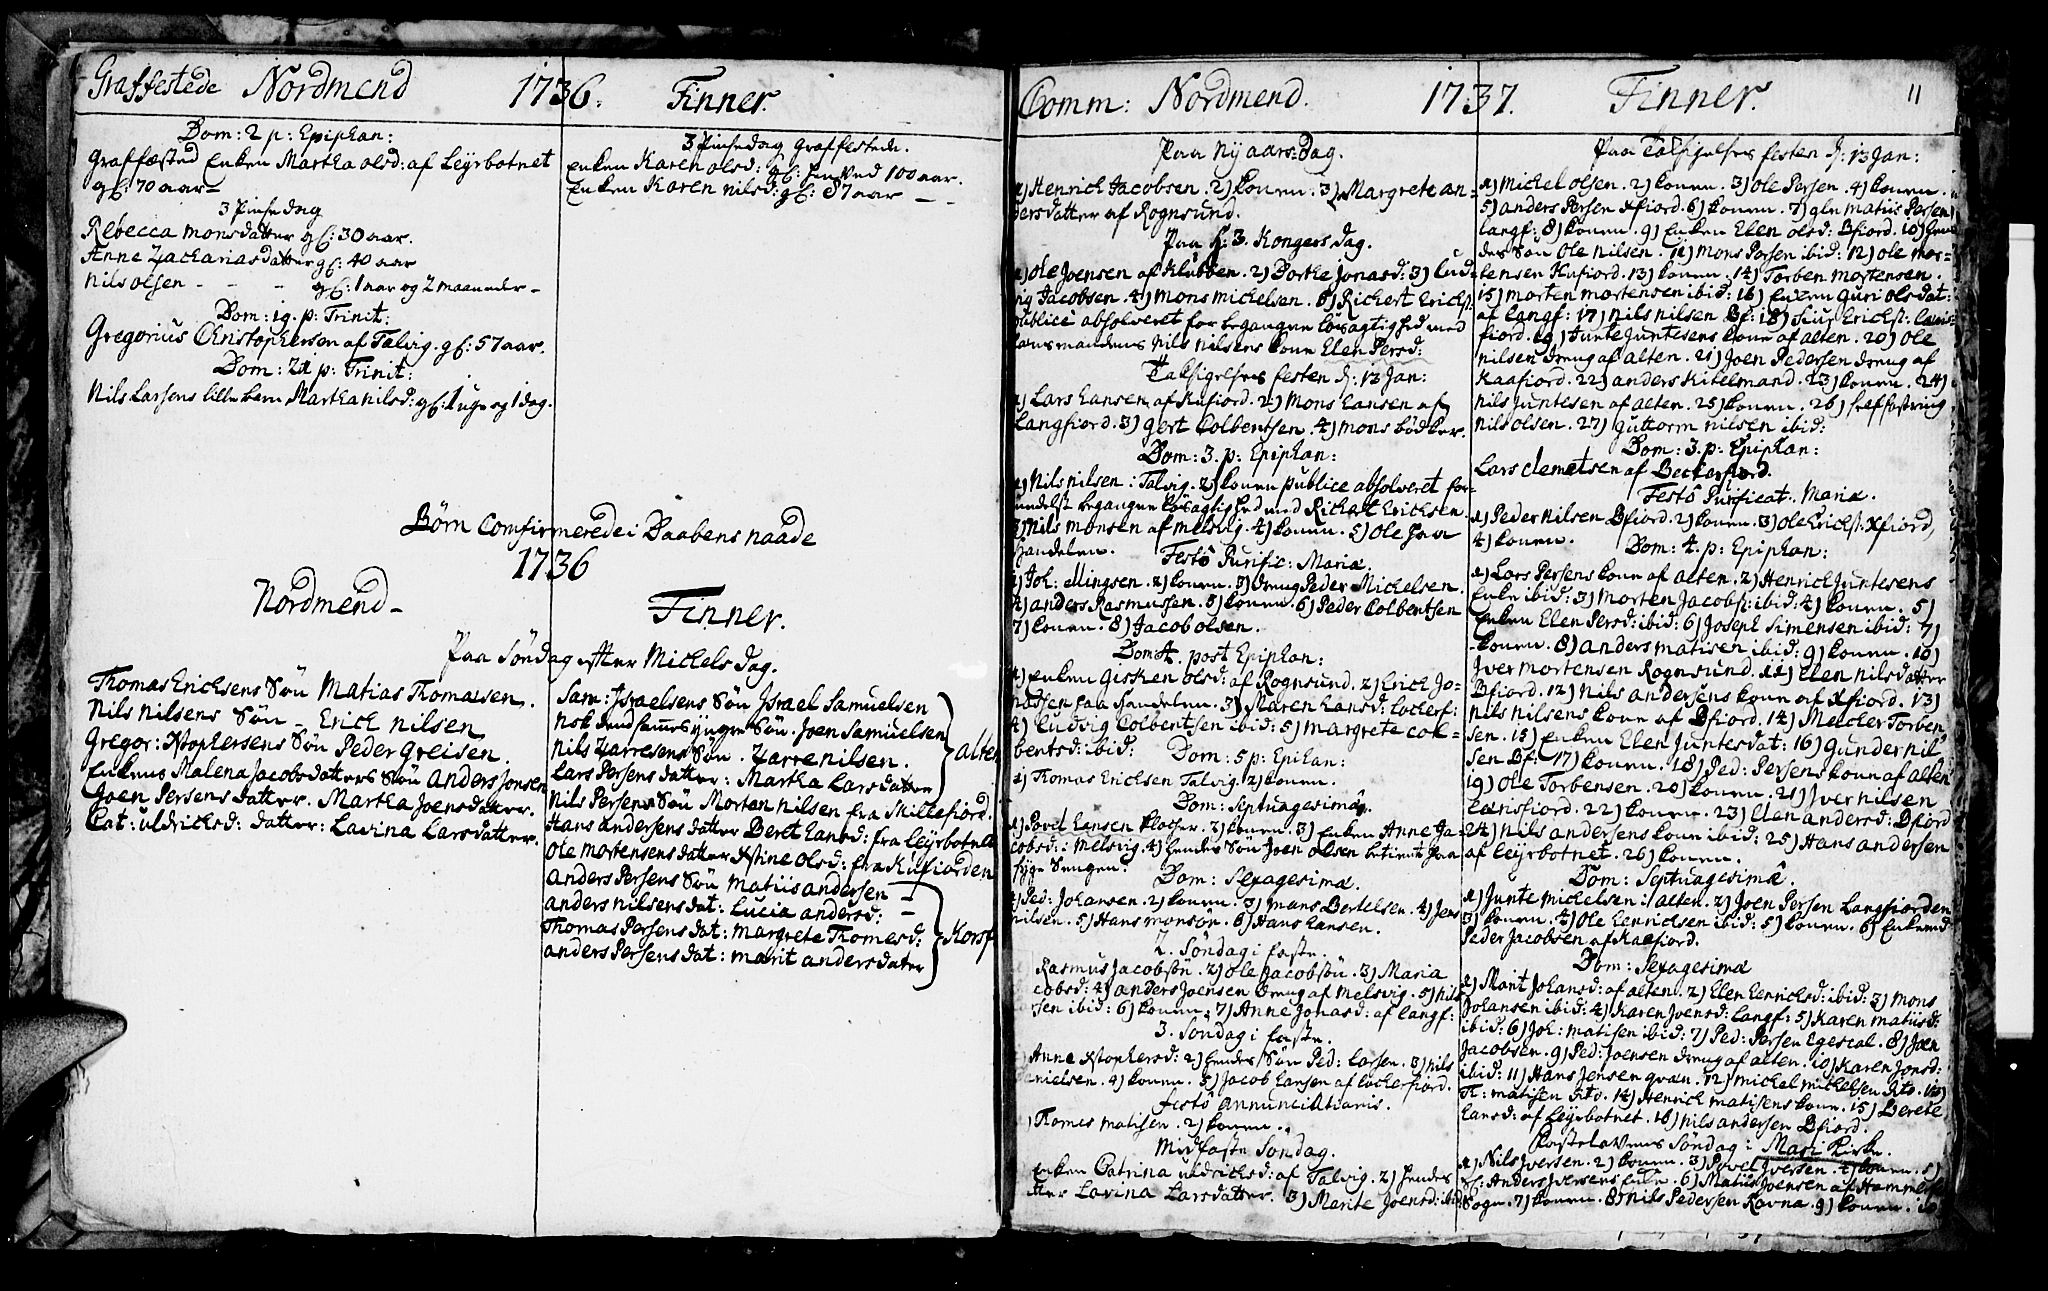 Graffestede Nordmend 1736. Finner.
Dom: 2 p: Epiphan:
Graffæsted Enken Martha olsd: af Leyrbotnet
gl: 70 aar
3 Pinsedag
Rebecca Monsdatter gl: 30 aar.
Anne Zachariasdatter gl: 40 aar
Nils olsen - - - gl: 1 aar og 2 maaneder -
Dom: 19. p: Trinit:
Gregorius Christophersen af Talvig. gl: 57 aar.
Dom: 21 p: Trinit:
Nils Larsens lille barn Martha nilsd: gl: 1 uge og 1 dag.
3 Pinsedag Graffestede.
Enken Karen olsd: gl: hen ved 100 aar.
Enken Karen nilsd: gl: 87 aar - -
Børn Comfirmerede i Daabens naade
1736
Nordmend - Finner.
Paa Søndag efter Michels dag.
Thomas Ericksens Søn Matias Thomassen.
Nils Nilsens Søn - Erick nilsen
Gregor: Xtophersens Søn Peder Greisen.
Enkens Malena Jacobsdatters Søn Anders Jonsen
Joen Persens datter. Martha Joensdatter.
Cat: uldricksd: datter: Lavina Larsdatter.
Sam: Israelsens Søn Israel Samuelsen
nok bend: Sams yngre Søn. Joen Samuelsen
Nils Zarresens Søn. Zarre nilsen.
Lars Persens datter: Martha Larsdatter
alten
Nils Persens Søn Morten nilsen fra Millefiord.
Hans andersens datter Beret hansd: fra Leyrbotnet
Ole Mortensens datter Xstine olsd: fra Kufiorden
Anders Persens Søn Matiis andersen -
anders nilsens dat: Lucia andersd: -
Thomas Persens dat: Margrete Thomesd:
anders Persens dat: marit andersdater
Korsf
Comm: Nordmend. 1737. Finner. 11
Paa Ny aars-Dag.
1) Henrick Jacobsen. 2) konen. 3) Margrete an-
dersdatter af Rognsund.
Paa H: 3. Kongers dag.
1) Ole Joensen af Klubben. 2) Dorthe Jonasd: 3) Lud-
vig Jacobsen. 4) Mons Mickelsen. 5) Richert Erichs:
publice absolveret for begangne løsagtighed med
Nils Nilsens kone Elen Persd:
Taksigelses festen d: 13 Jan:
1) Lars hansen af Kufiord. 2) Mons hansen af
Langfiord. 3) gert Colbentsen. 4) mons bødker.
Dom: 3. p: Epiphan:
1) Nils nilsen: Talvig. 2) konen publice absolveret for
begangen løsagtighed med Richart Ericksen.
3) Nils monsen af melsvig. 4) konen. 5) Ole paa
handelen.
Festo Purific: Mariæ.
1) Joh: Ellingsen. 2) konen. 3) dreng Peder Mickelsen.
4) anders Rasmussen. 5) konen. 6) Peder Colbentsen
7) konen. 8) Jacob olsen.
Dom: 4. post Epiphan:
1) enken Gisken olsd: af Rognsund. 2) Erich Jo-
nassen paa handelen. 3) Maren hansd: Lockerf:
4) Ludvig Colbentsen ibid: 5) margrete col-
bentsd: ibid:
Dom: 5 p: Epiphan:
1) Thomas Ericksen Talvig. 2) konen.
Dom: Septuagesima.
1) Povel hansen klocker. 2) konen. 3) Enken Anne Ja-
cobsd: Melsvig. 4) hendes Søn Joen olsen betient paa
syge Sengen.
Dom: Sexagesimæ.
1) Ped: Johansen. 2) konen. 3) mans Bertelsen. 4) Jens
nilsen. 5) Hans monsøn. 6) Hans hansen.
2. Søndag i faste.
Rasmus Jacobsøn. 2) Ole Jacobsøn. 3) Maria
cobsd: 4) anders Joensen dreng af Melsvig. 5) Nils
sen ibid: 6) konen. 7) Anne Jonasd: af Langf:
3. Søndag i faste.
Anne Xtophersd: 2) hendes Søn Ped: Larsen. 3) nils
anielsen. 4) konen. 5) Jacob hansen af Lockerfiord.
festo Annunciationis.
1) Thomes matisen. 2) konen.
Midfaste Søndag.
Enken Catrina uldricksd: af Talvig. 2) hendes
tter Lavina Larsdatter. 3) Marite Joensd: ibid:
Paa Taksigelses festen d: 13 Jan:
1) Michel olsen. 2) konen. 3) Ole Persen. 4) konen.
5) anders Persen Xfiord. 6) konen. 7) glm matiis Persen
Langf: 8) konen. 9) Enken Elen olsd: Bfiord. 10) hen-
des Søn Ole Nilsen. 11) Mons Persen ibid: 12) ole mor-
tensen Kufiord. 13) konen. 14) Torben mortensen.
15) morten mortensen ibid: 16) enken Guri olsdat:
af Langf: 17) Nils nilsen Bf: 18) Siur Erichs:
fiord. 19) Junte Juntesens kone af alten. 20) Ole
nilsen dreng af alten. 21) Joen Pedersen dreng af
Kaafiord. 22) anders Kitelmand. 23) konen. 24)
Nils Juntesen af alten. 25) konen. 26)
Nils olsen. 27) Guttorm nilsen ibid:
Dom: 3. p: Epiphan:
Lars clemetsen af Beckerfiord.
Festo Purificat. Mariæ.
1) Peder nilsen Bfiord. 2) konen. 3) Ole Erichs: Xfiord,
4) konen.
Dom: 4. p: Epiphan:
1) Lars Persens kone af alten. 2) Henrich Juntesens
Enke ibid: 3) Morten Jacobs: ibid: 4) konen. 5)
Enken Elen Persd: ibid: 6) Joseph Simensen ibid: 7)
konen. 8) anders matisen ibid: 9) konen. 10)
Iver mortensen Rognsund. 11) Elen nilsdatter
Bfiord. 12) Nils andersens kone af Xfiord. 13)
Nils nilsens kone af Bfiord. 14) Melcher Torben-
sen. 15) enken Elen Juntesdat: 16) Gunder nil-
sen Bf: 17) konen. 18) Ped: Persens kone af alten
19) Ole Torbensen. 20) konen. 21) Iver nilsen
fiord. 22) konen. 23) Elen andersd: Bfiord
24) Nils andersens kone ibid: 25) Hans andersen
af Leyrbotnet. 26) konen.
Dom: Septuagesimæ.
1) Junte michelsen: alten. 2) Joen Persen Langfiorden
3) konen. 4) Ole henrichsen ibid: 5) konen. 6)
Peder Jacobsen af Kaafiord.
Dom: Sexagesimæ
1) Marit Johansd: af alten. 2) Elen henricksd: ibid: 3) Mons
Johansen ibid: 4) Karen Joensd: Langf: 5) Karen matiisd:
ibid: 6) Joh: matisen ibid: 7) Ped: Persen Egescal. 8) Joen
Jacobsen. 9) Ped: Joensen dreng af alten. 10) Karen Jonsd:
ibid: 11) Hans Jensen qvæn. 12) michel michelsen dito. 13)
matisen dito. 14) Henrich matisens kone. 15) Berete
hansd: af Leyrbotnet. 16) nils andersen Bfiord.
Fastelavens Søndag i Masi Kirke.
1) Nils Iversen. 2) konen. 3) Povel Iversen. 4) konen. 5)
Sl: Anders Iversens enke. 6) Matiis Joensen af Hammerf:
Sogn. 7) konen. 8) Nils Pedersen Ravna. 9) konen. 10)